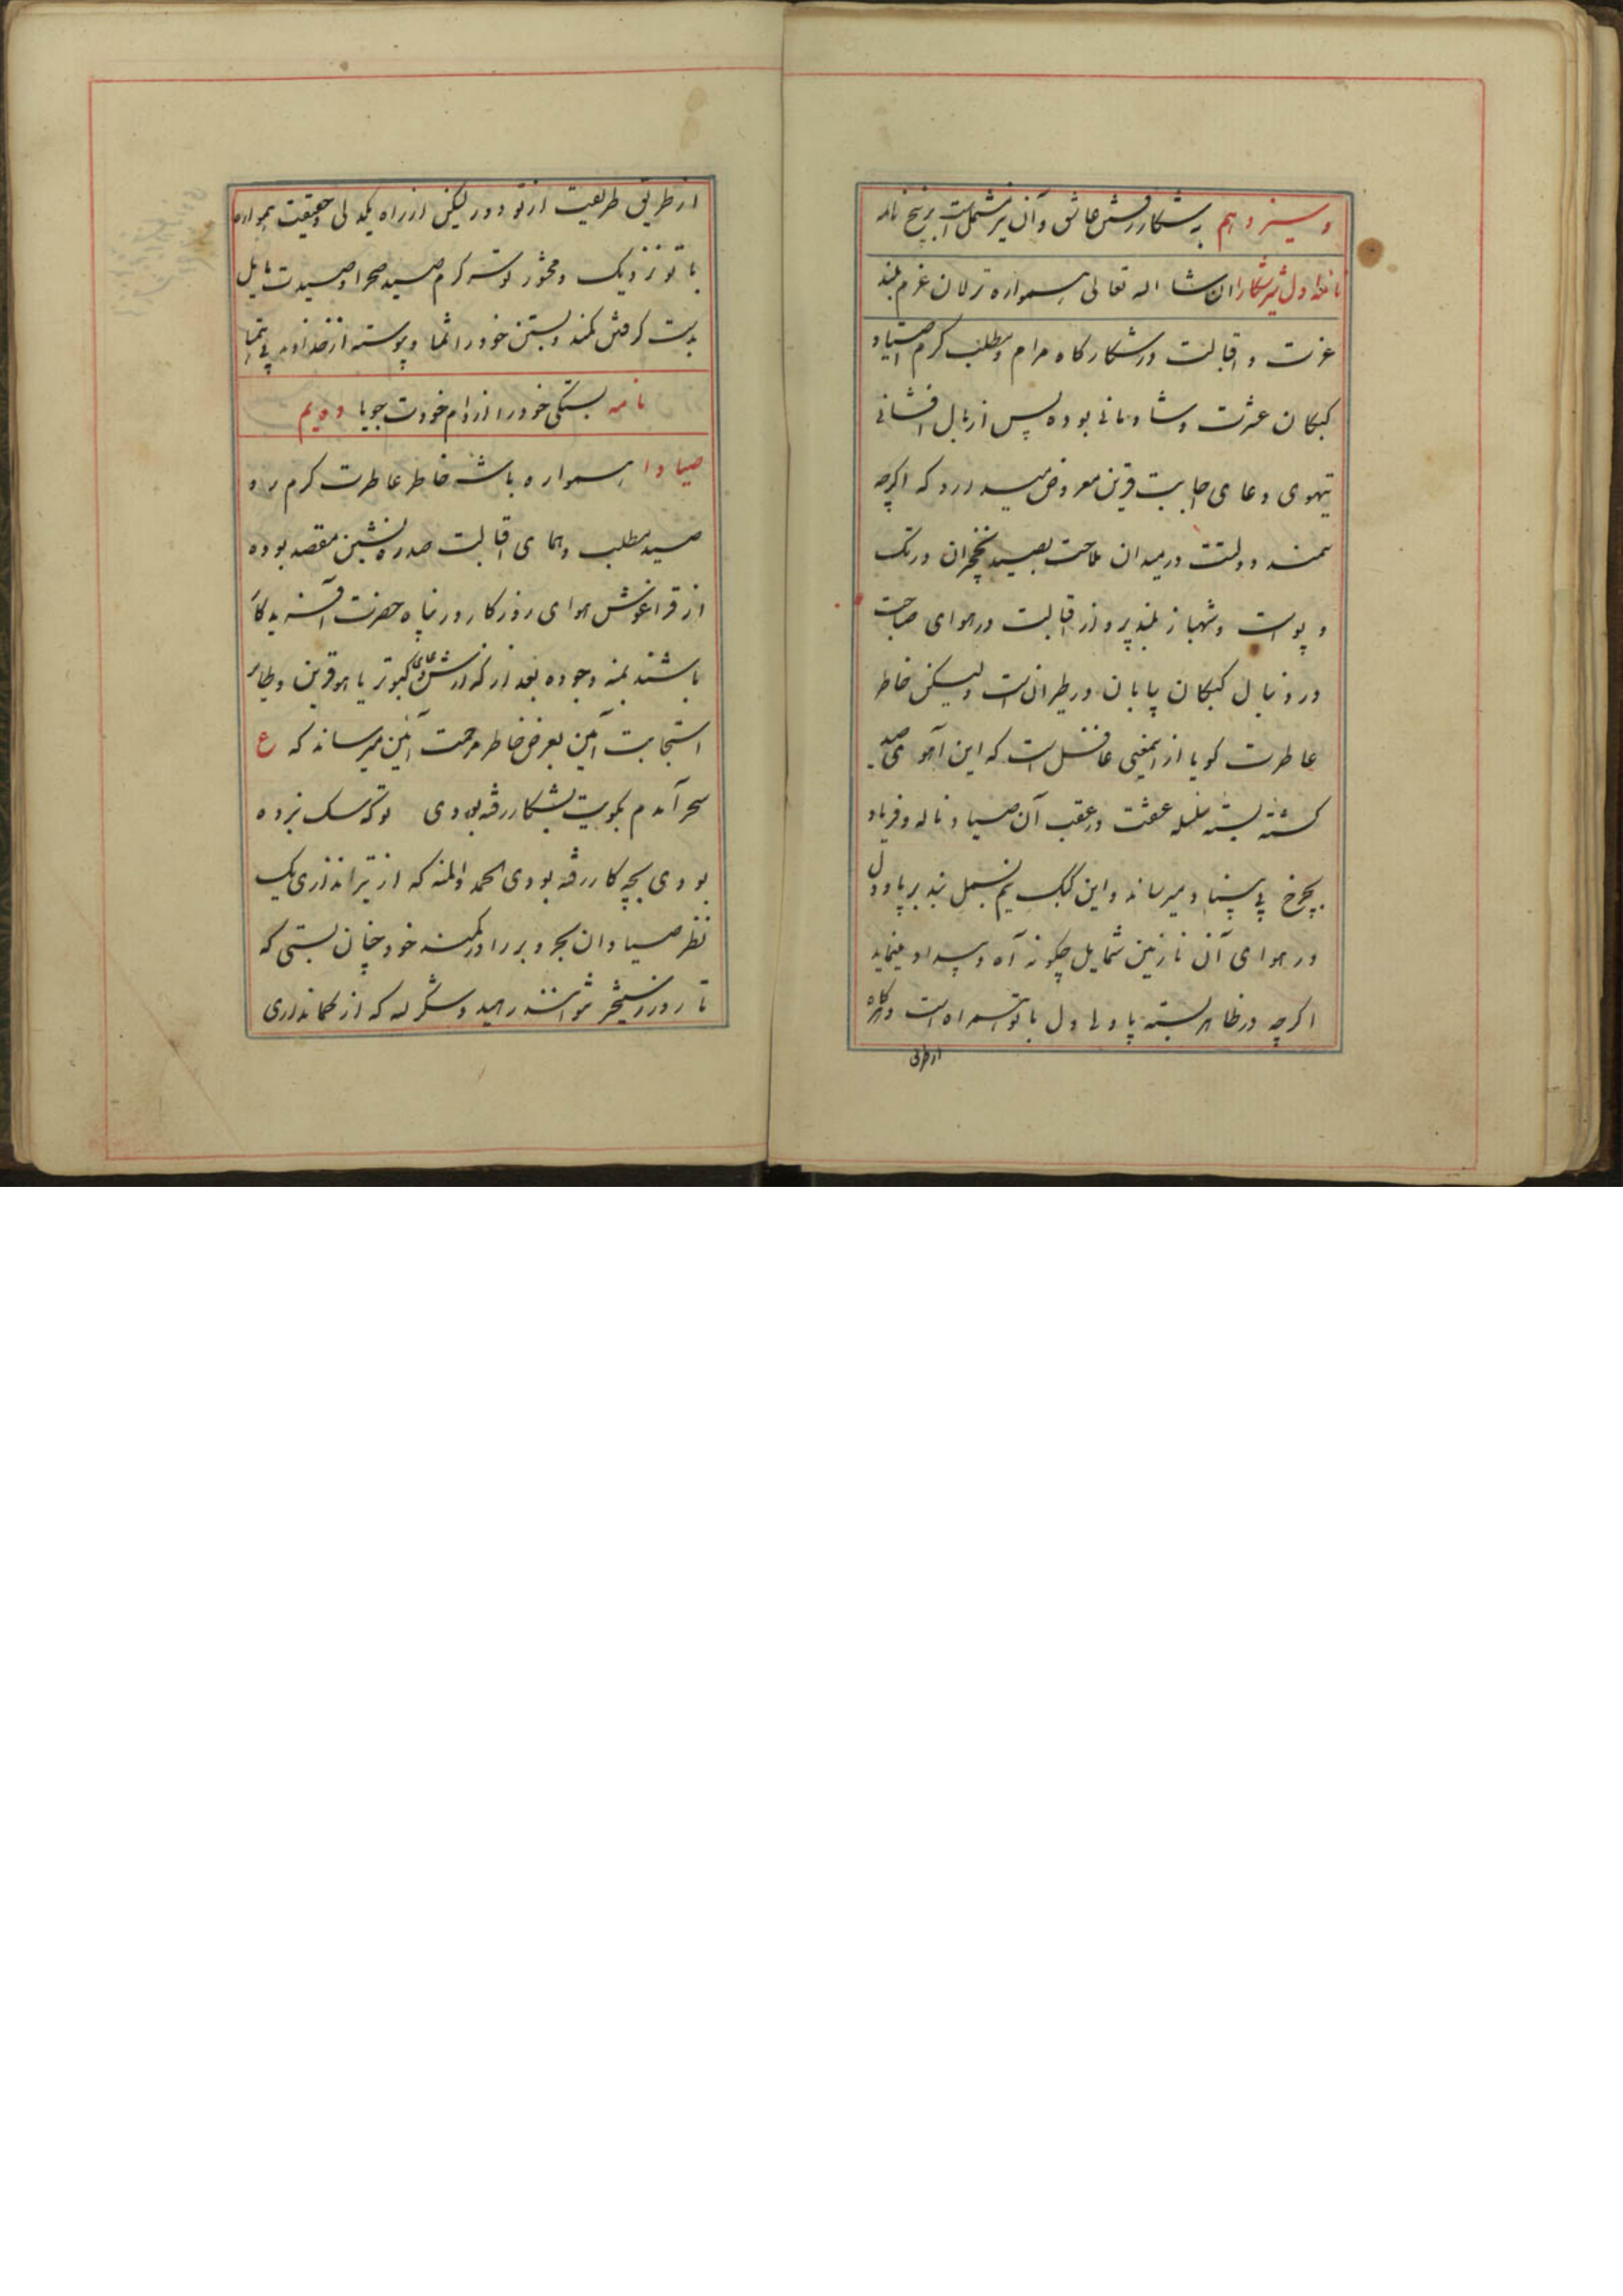 و سیزدهم به شکار رفتن عاشق و آن نیز مشتمل است بر پنج نامه
نامه اول شیر شکارا ان شا اله تعالی همواره ترلان عزم بلند
عزت و اقبالت در شکارگاه مرام و مطلب گرم اصطیاد
کبکان عشرت و شادمانی بوده پس از بال افشانی
تیهوی دعای اجابت قرین معروض میدارد که اگرچه
سمند دولتت در میدان ملاحت بصید نخچیران در تک
و پوست و شهباز بلند پرواز اقبالت در هوای صباحت
در دنبال کبکان پایان در طیرانست ولیکن خاطر
عاطرت گویا از اینمعنی غافل است که این آهوی صید
گشته بسته سلسله عشقت در عقب آن صیاد ناله و فریاد
بچرخ بی بنیاد میرساند و این کبک نیم بسمل بند بر پا و دل
در هوای آن نازنین شمایل چگونه آه و بیداد مینماید
اگرچه در ظاهر بسته پا ولی دل با تو همراه است و هرگاه
از طریق
از طریق طریقت از تو دور لیکن از راه یکدلی و حقیقت همواره
با تو نزدیک و محشور توسه گرم صید صحرا و صیدت مایل
بدست گرفتن کمند و بستن خود را شما و پیوسته از خداوند بی همتا
نامه بستگی خود را از دام خودت جویا دویم
صیادا همواره باشه خاطر عاطرت گرم ره
صید مطلب و همای اقبالت صدره نشین مقصد بوده
از قراغوش هوای روزگار در پناه حضرت آفریدگار
باشند بمنه وجوده بعد از گذارش دعای کبوتر یاهو قرین و طایر
استجابت آئین بعرض خاطر مرحمت آئین میرساند که ع
سحر آمدم بکویت بشکار رفته بودی تو که سک نبرده
بودی بچه کار رفته بودی الحمد والمنه که از تیر اندازی یک
نظر صیادان بحر و بر را در کمند خود چنان بستی که
تا روز رستخیز نتوانند رهید و شکر له که از کمانداری